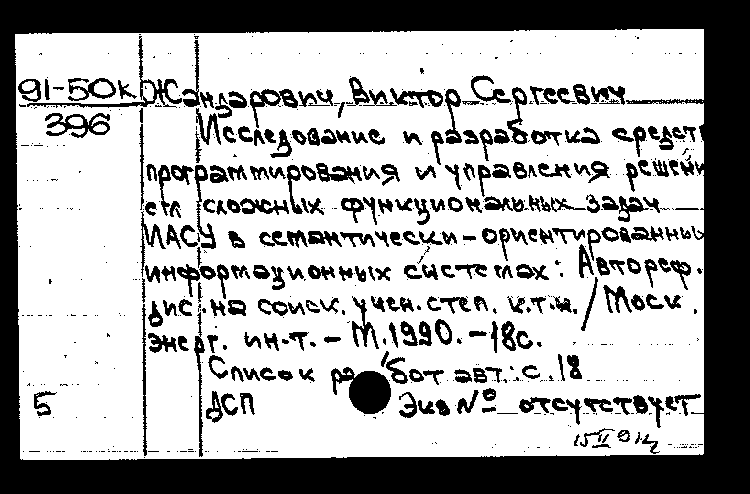 91-50к Жандарович, Виктор Сергеевич
396 Исследование и разработка средств
программирования и управления решени
ем сложных функциональных задач
ИАСУ в семантически-ориентированных
информационных системах: Автореф.
дис. на соиск. учен. степ. к.т.н. / Моск.
энерг. ин-т. - М. 1990. - 18с.
Список работ авт.: с. 18
5 ДСП Экз № отсутствует